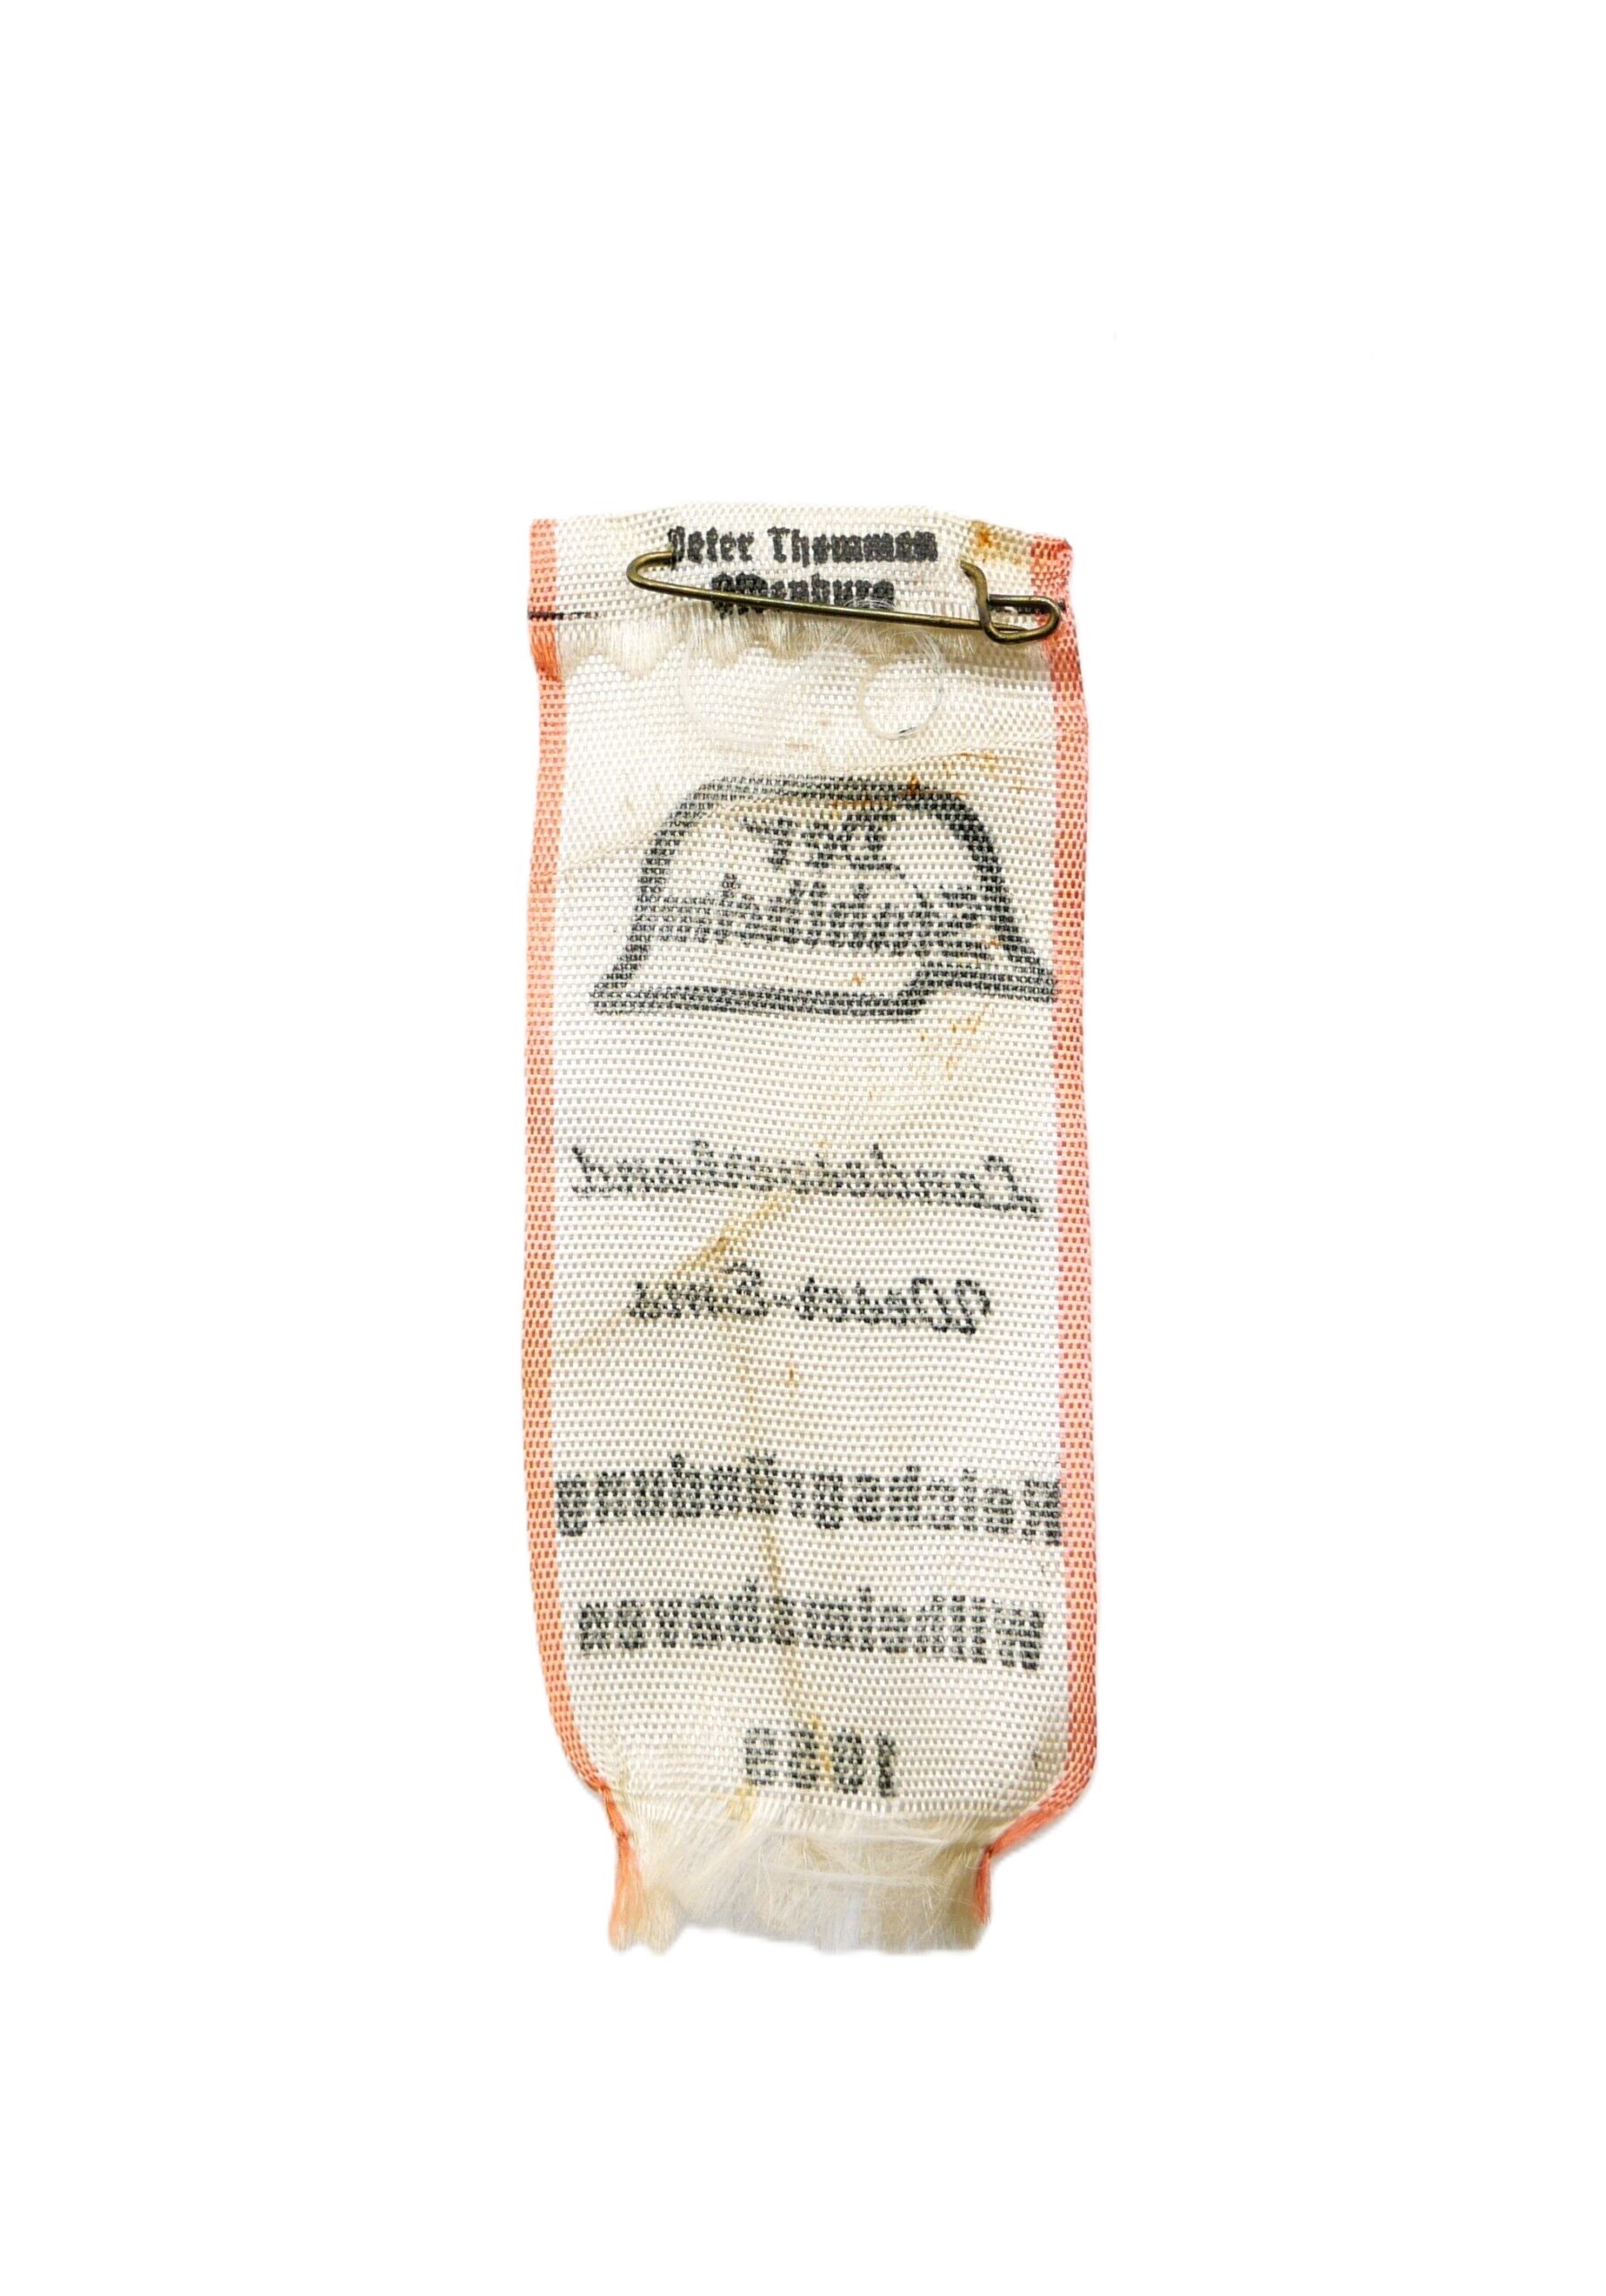 Peter Thommen
Oldenburg
Der
Stahlhelm
Landesverband
Weser-Ems
Reichsgründung
Wilhelmshaven
1933